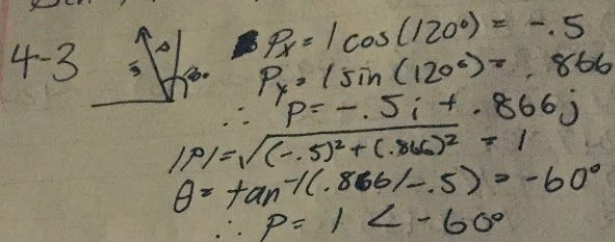 4-3
Px = 1 cos(120°) = -.5
Py = 1 sin(120°) = .866
∴ P = -.5i + .866j
|P| = √(-.5)² + (.866)² = 1
θ = tan⁻¹(.866/-.5) = -60°
∴ P = 1 < -60°